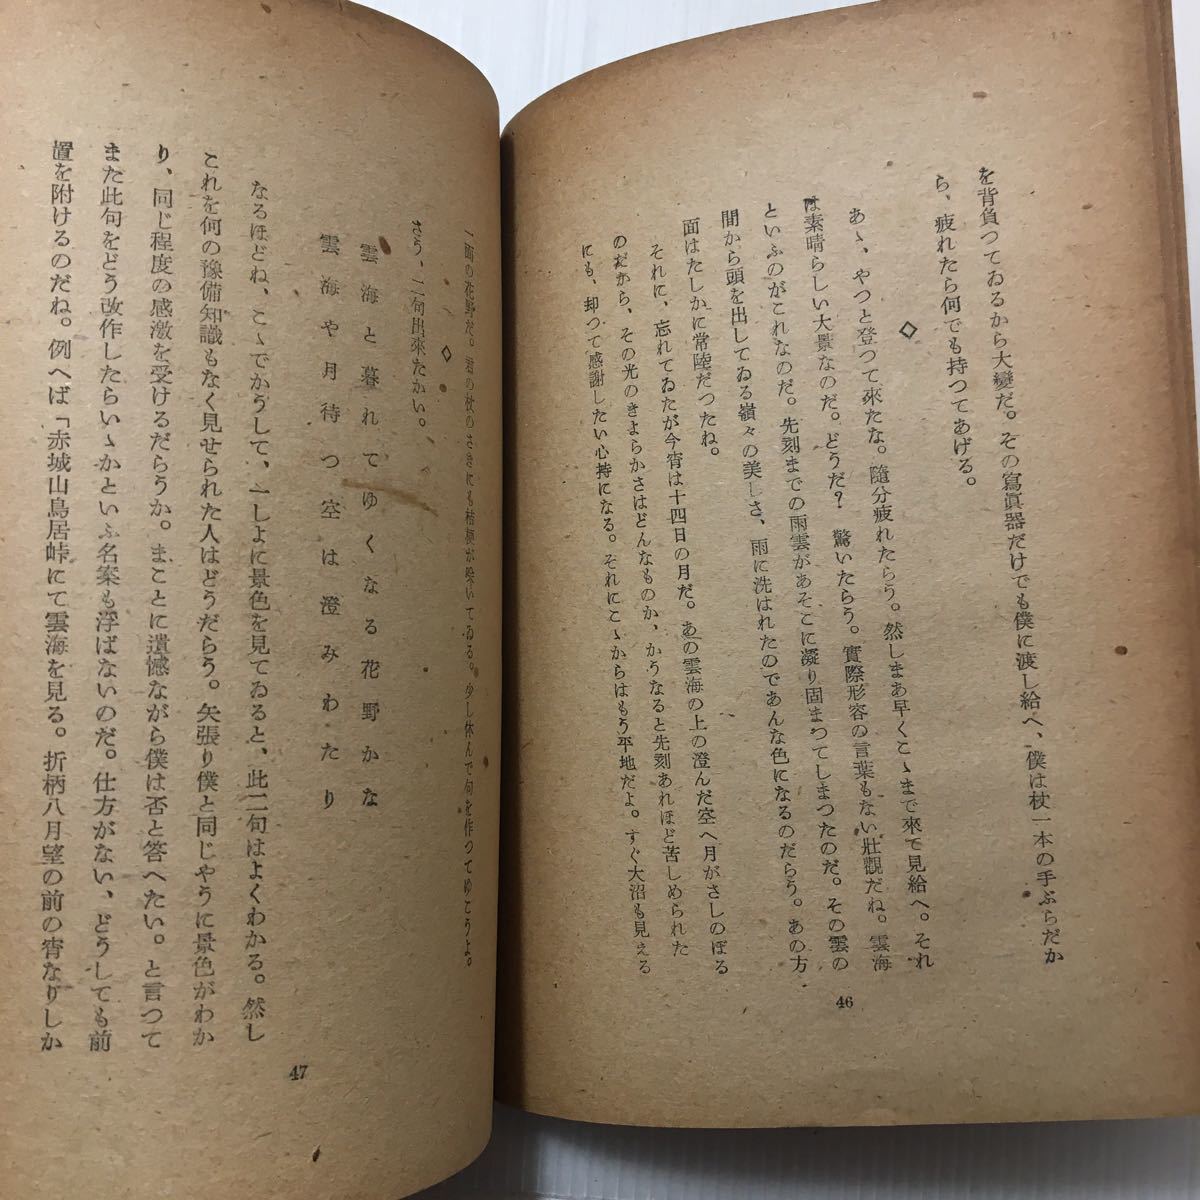 を背負つてゐるから大變だ。その寫眞器だけでも僕に渡し給へ、僕は杖一本の手ぶらだか
ら、疲れたら何でも持つてあげる。
◇
あゝ、やつと登つて來たな。隨分疲れたらう。然しまあ早くこゝまで來て見給へ。それ
は素晴らしい大景なのだ。どうだ？　驚いたらう。實際形容の言葉もない壯觀だね。雲海
といふのがこれなのだ。先刻までの雨雲があそこに凝り固まつてしまつたのだ。その雲の
間から頭を出してゐる嶺々の美しさ、雨に洗はれたのであんな色になるのだらう。あの方
面はたしかに常陸だつたね。
それに、忘れてゐたが今宵は十四日の月だ。あの雲海の上の澄んだ空へ月がさしのぼる
のだから、その光のきよらかさはどんなものか、かうなると先刻あれほど苦しめられた
にも、却つて感謝したい心持になる。それにこゝからはもう平地だよ。すぐ大沼も見える
46
一面の花野だ。君の杖のさきにも桔梗が咲いてゐる。少し休んで句を作つてゆこうよ。
◇
さう、二句出來たかい。
雲海と暮れてゆくなる花野かな
雲海や月待つ空は澄みわたり
なるほどね、こゝでかうして、一しよに景色を見てゐると、此二句はよくわかる。然し
これを何の豫備知識もなく見せられた人はどうだらう。矢張り僕と同じやうに景色がわか
り、同じ程度の感激を受けるだらうか。まことに遺憾ながら僕は否と答へたい。と言つて
また此句をどう改作したらいゝかといふ名案も浮ばないのだ。仕方がない、どうしても前
置を附けるのだね。例へば「赤城山鳥居峠にて雲海を見る。折柄八月望の前の宵なりしか
47